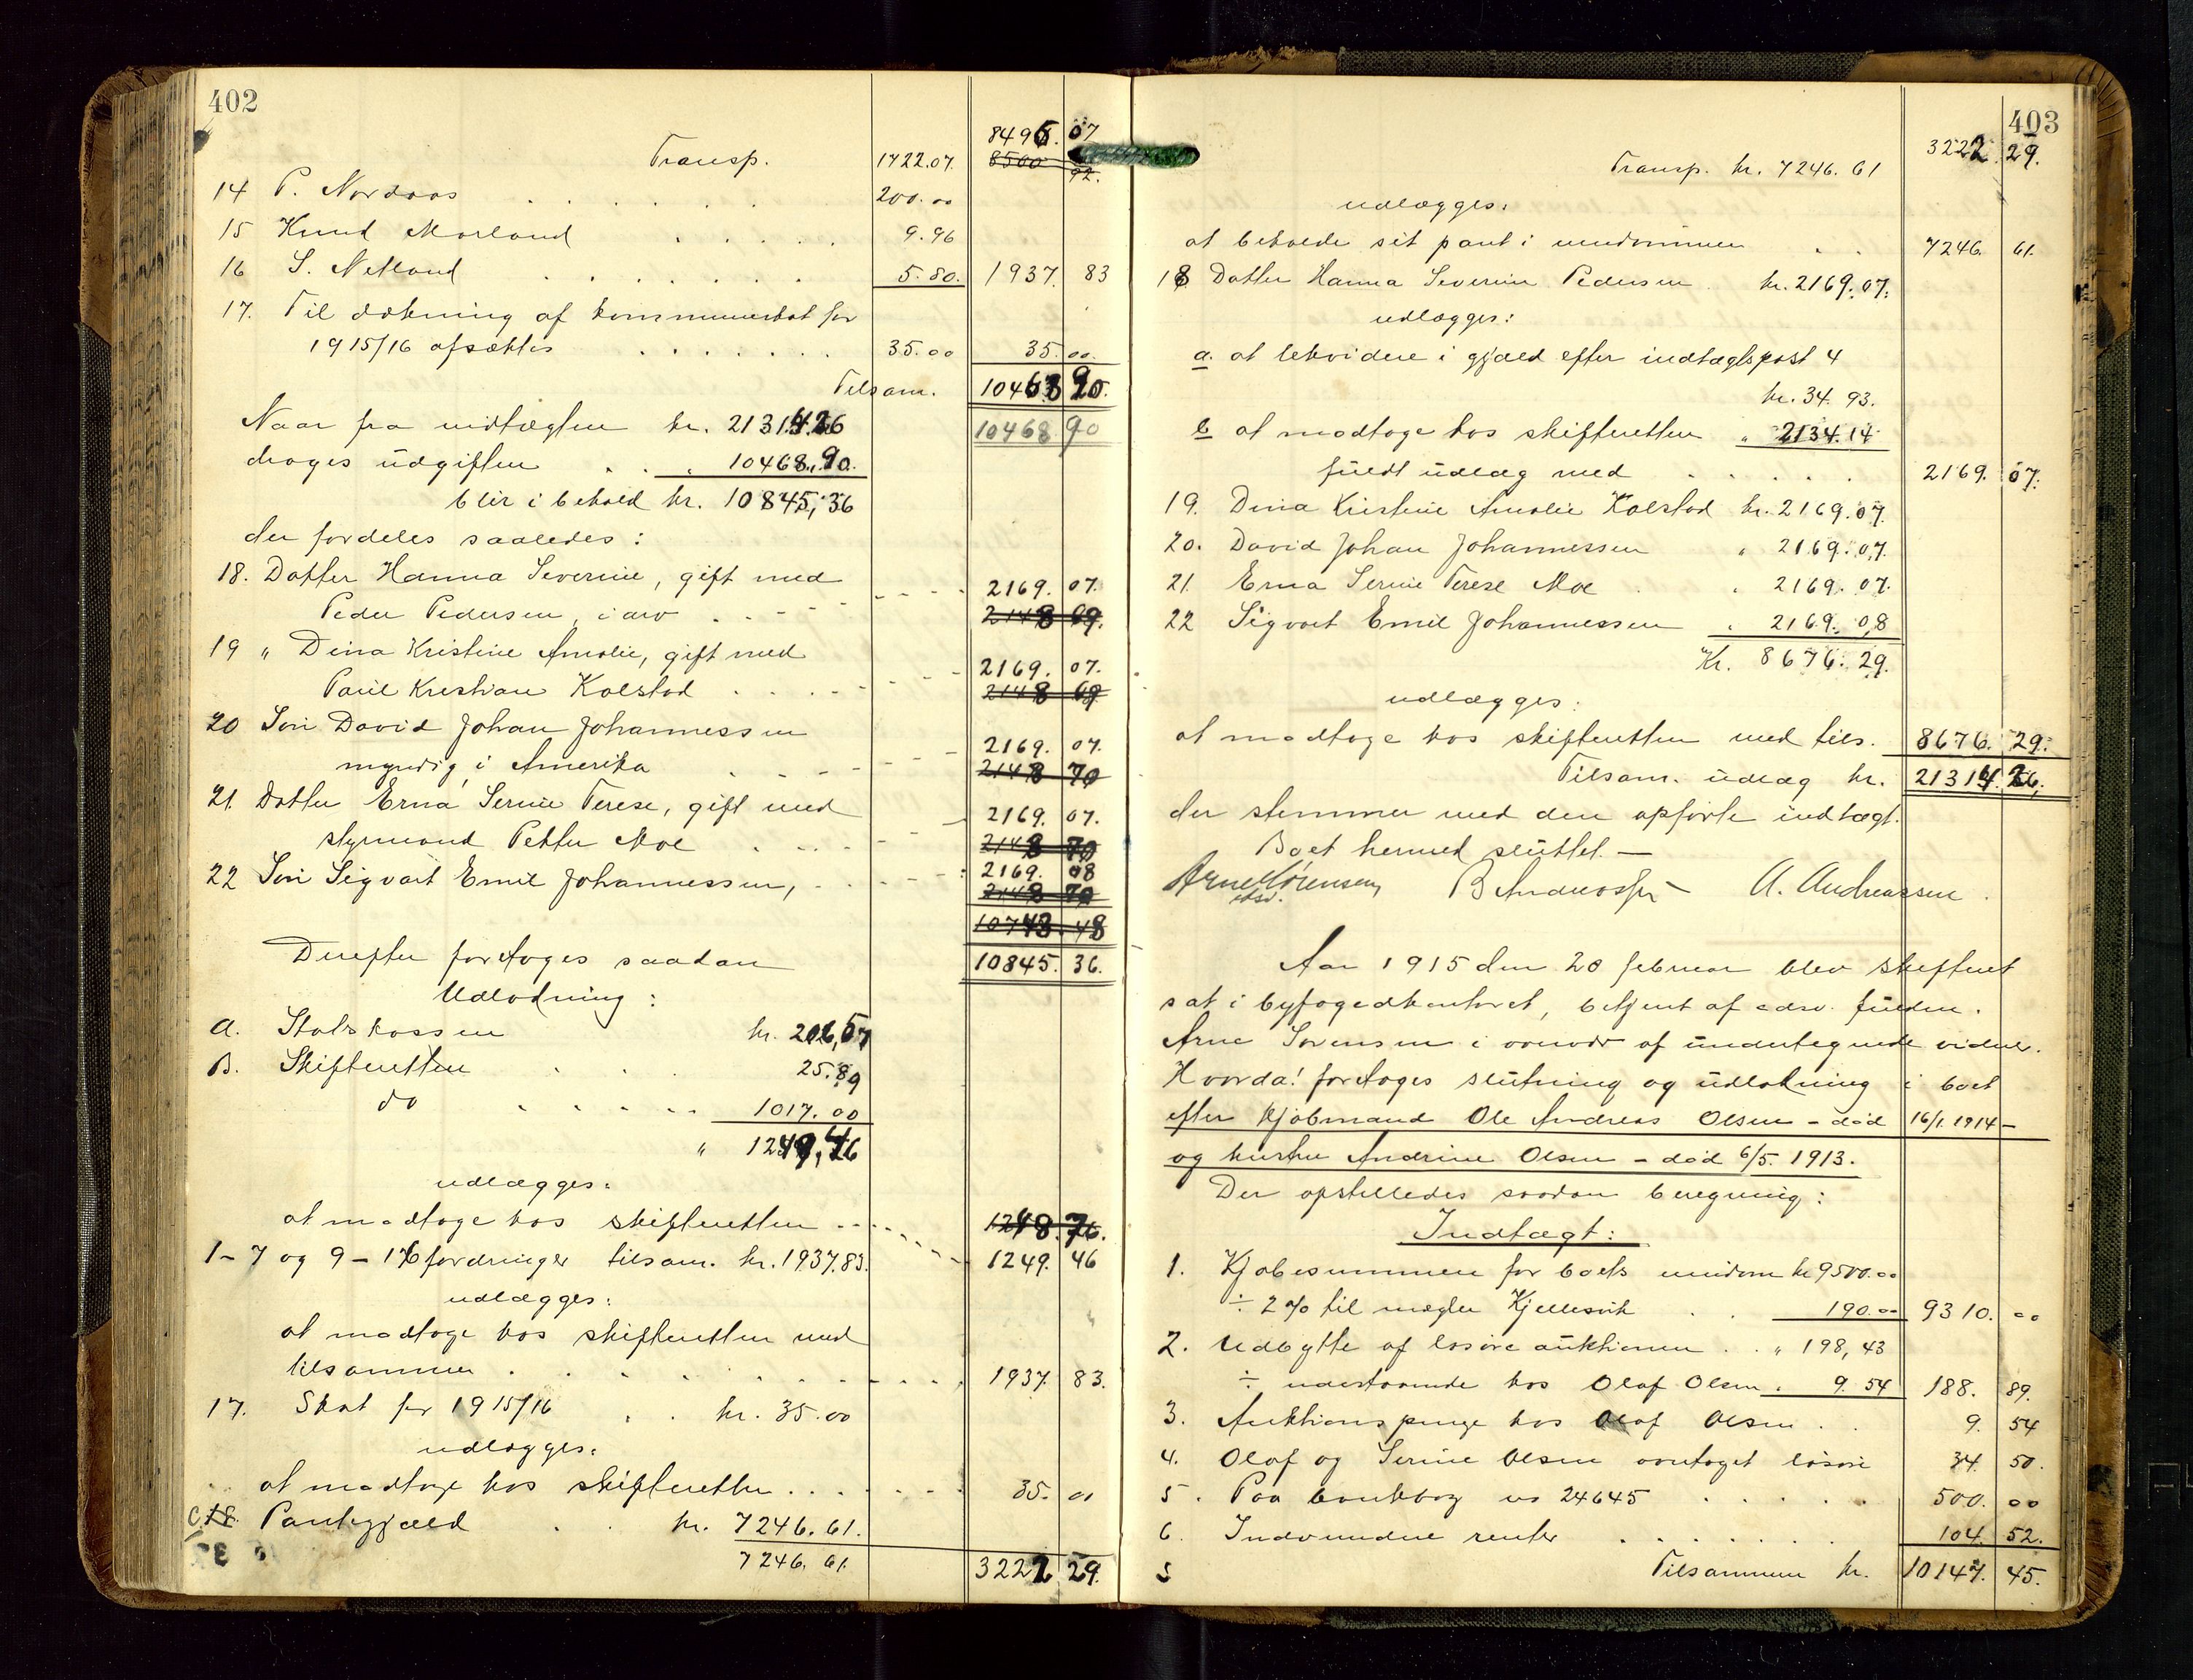 402
8496. 07
Transp. 1722.07. 8500 92.
14 P. Nordaas . . . . . . 200.00
15 Knud Morland . . . . . 9.96
16 S. Netland . . . . . . 5.80. 1937. 83
17. Til dækning af kommuneskat for
1915/16 afsættes . . . . . . 35.00 35. 00.
Tilsam. 10468 90.
Naar fra indtægten kr. 21314.26 10468 90
drages udgiften . . „ 10468.90.
blir i behold kr. 10845,36
der fordeles saaledes:
18. Datter Hanna Severine, gift med 2169. 07.
Peder Pedersen, i arv . . . 2148 69.
19 „ Dina Kristine Amalie, gift med 2169. 07.
Paul Kristian Kolstad . . . 2148 69
20 Søn David Johan Johannessen 2169. 07.
myndig, i Amerika . . . 2148 70
21. Datter Erna Serine Terese, gift med 2169. 07.
styrmand Petter Moe . . . 2148 70
22 Søn Sigvart Emil Johannessen, . . . 2169. 08
2148 70
10743. 48
Derefter foretages saadan 10845. 36.
Udlodning:
A. Statskassen kr. 206,57
B. Skifteretten . . . 25.89
do . . . . . 1017.00
„ 1249,46
udlægges:
at modtage hos skifteretten . . . . 1248.76.
1-7 og 9-16 fordringer tilsam. kr. 1937.83. 1249. 46
udlægges:
at modtage hos skifteretten med
tilsammen . . . . . . . 1937. 83.
17. Skat for 1915/16 . . kr. 35.00
udlægges:
at modtage hos skifteretten . . . . . 35. 00
C. 18. Pantegjæld . . kr. 7246.61.
7246. 61. 3222 29.
403
Transp. kr. 7246. 61 3222. 29.
udlægges:
at beholde sit pant i eiendommen . . 7246. 61.
18 Datter Hanna Severine Pedersen . kr. 2169.07.
udlægges:
a. at lekvidere i gjæld efter indtægtspost 4
kr. 34. 93.
b at modtage hos skifteretten „ 2134.14
fuldt udlæg med . . . . . 2169. 07.
19. Dina Kristine Amalie Kolstad kr. 2169.07.
20. David Johan Johannessen „ 2169.07.
21. Erna Serine Terese Moe . „ 2169. 07.
22 Sigvart Emil Johannessen „ 2169. 08
Kr. 8676. 29.
udlægges:
at modtage hos skifteretten med tils. 8676. 29.
Tilsam. udlæg kr. 21314. 26.
der stemmer med den opførte indtægt.
Boet hermed sluttet. —
Arne Sørensen B Andreassen A. Andreassen.
edsv.
Aar 1915 den 20 februar blev skifteret
sat i byfogedkontoret, betjent af edsv. fuldm.
Arne Sørensen i overvær af undertegnede vidner.
Hvorda! foretages slutning og udlodning i boet
efter kjøbmand Ole Andreas Olsen - død 16/1. 1914 -
og hustru Andrine Olsen - død 6/5. 1913.
Der opstilledes saadan beregning:
Indtægt:
1. Kjøbesummen for boets eiendom kr 9500.00
÷ 2% til mægler Kjellesvik . . 190.00 9310. 00
2. Udbytte af løsøre auktionen . . „ 198,43
÷ udestaaende hos Olaf Olsen „ 9.54 188. 89.
3. Auktionspenge hos Olaf Olsen . . 9. 54
4. Olaf og Serine Olsen overtaget løsøre 34. 50.
5. Paa bankbog no 24645 . . . . . 500. 00
6. Indvundne renter . . . . . . 104. 52.
Tilsammen kr. 10147. 45.